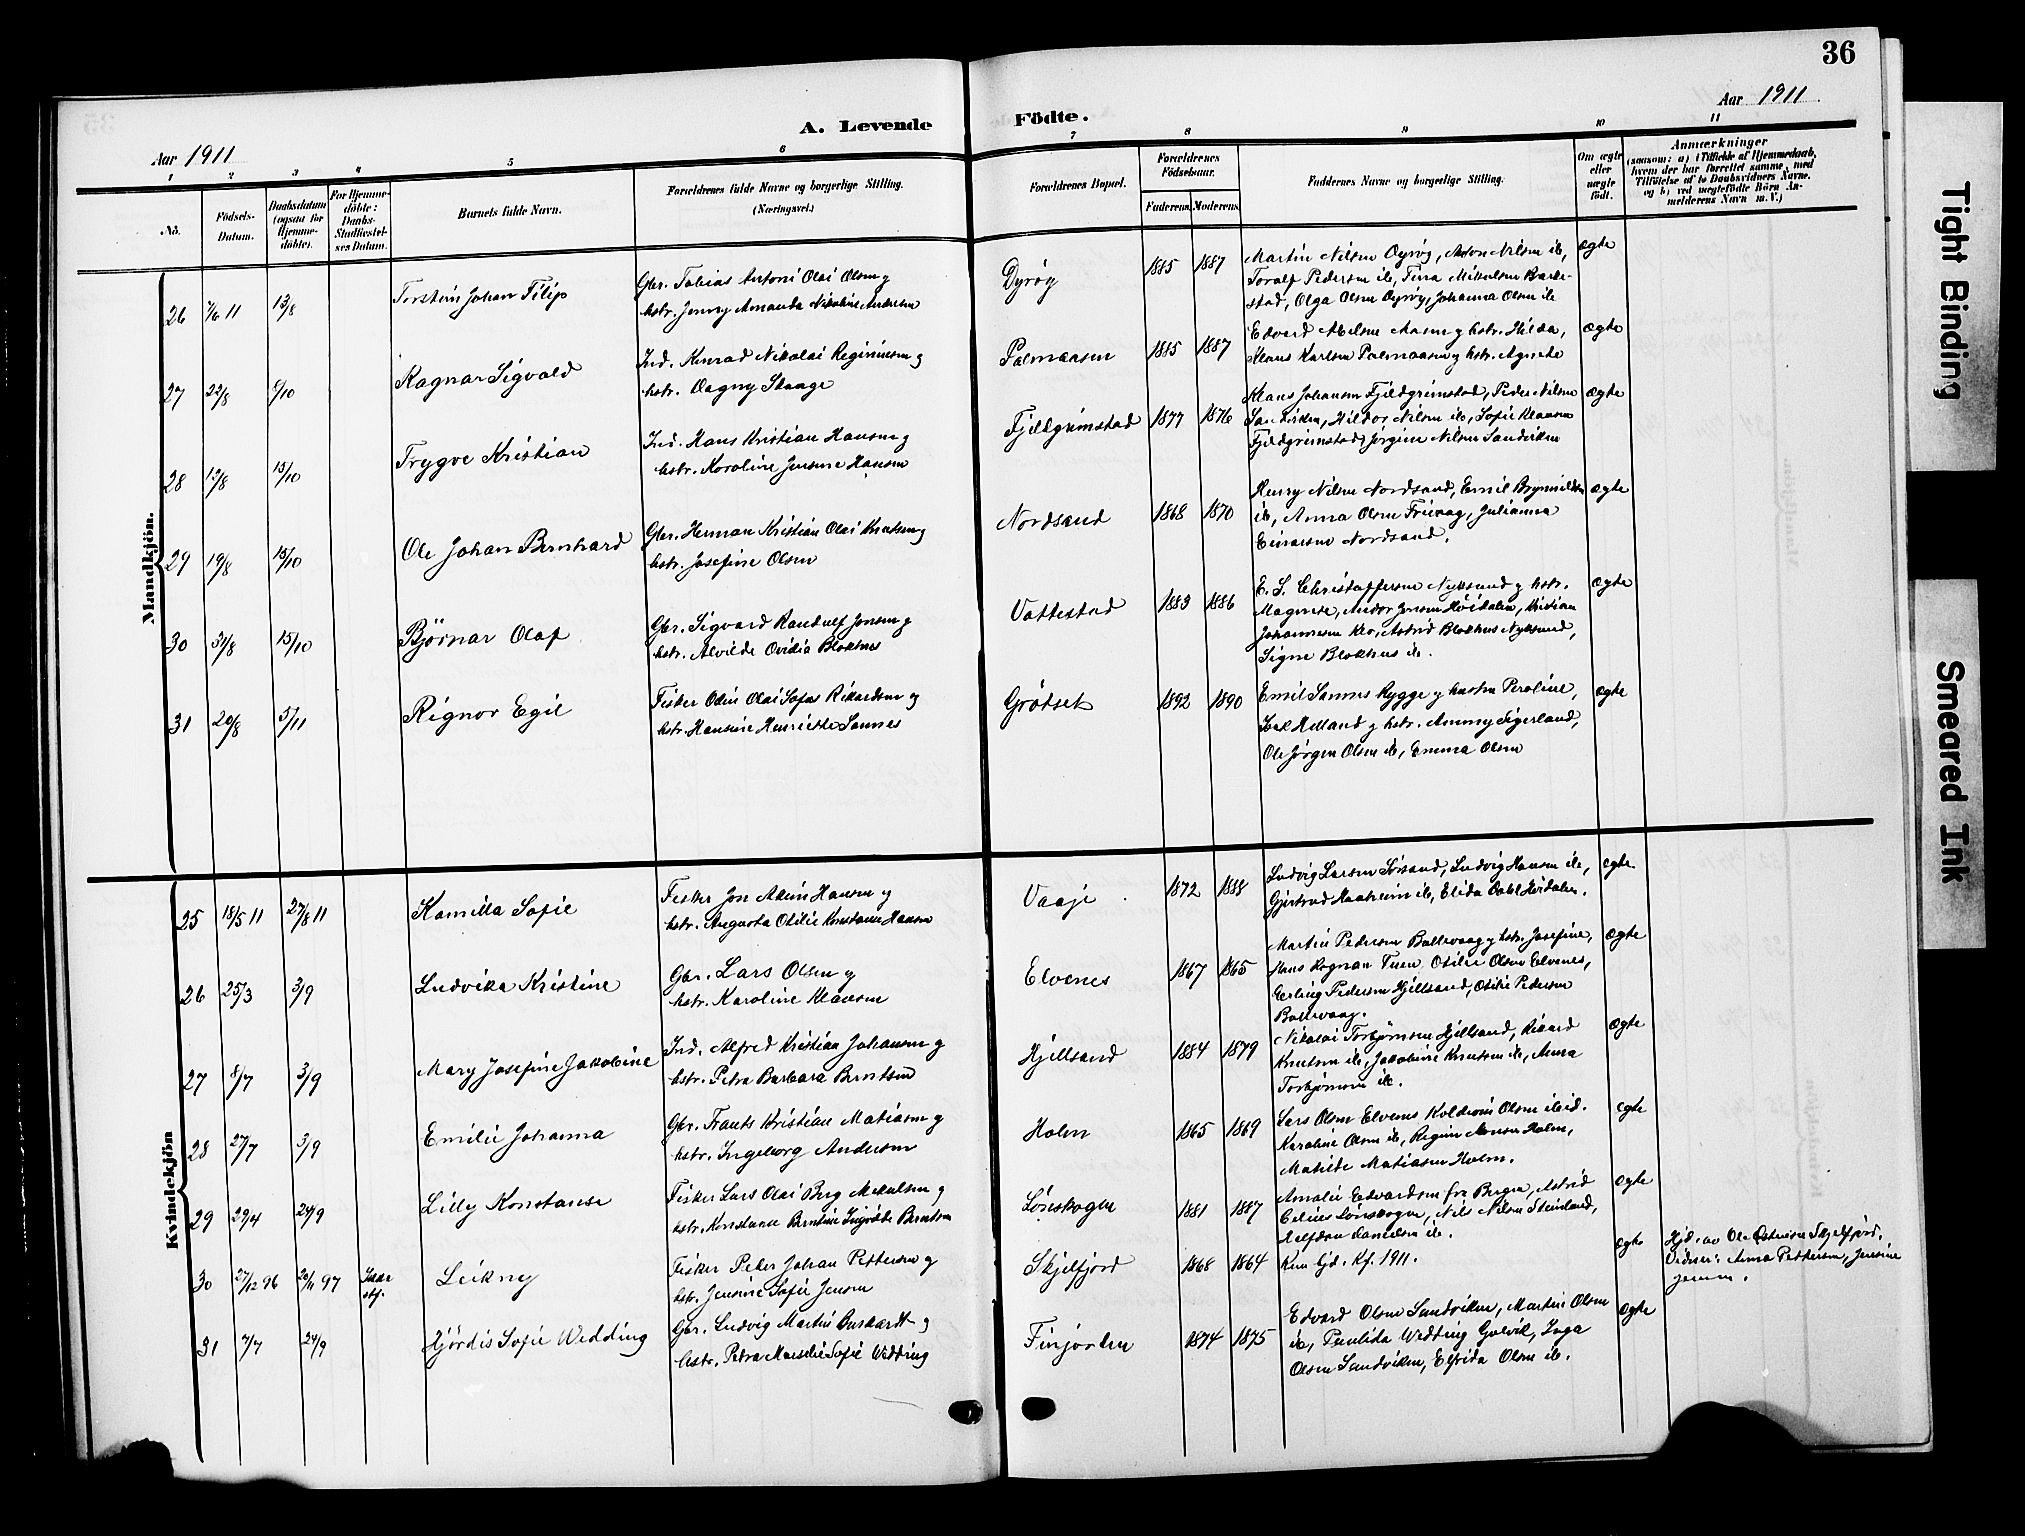 36
Aar 1911
A. Levende Födte.
Aar 1911
1 2 3 4 5 6 7 8 9 10 11
No.
Födsels-
Datum.
Daabsdatum
(ogsaa for
Hjemme-
döbte).
For Hjemme-
döbte:
Daabs-
Stadfæstel-
ses Datum.
Barnets fulde Navn.
Forældrenes fulde Navne og borgerlige Stilling.
(Næringsvei.)
Forældrenes Bopæl.
Forældrenes
Födselsaar.
Faderens. Moderens.
Faddernes Navne og borgerlige Stilling.
Om ægte
eller
uægte
født.
Anmærkninger
(saasom: a) i Tilfælde af Hjemmedaab,
hvem der har forrettet samme, med
Tilföielse af to Daabsvidners Navne,
og b) ved uægtefödte Börn An-
melderens Navn m. V.)
Mandkjön.
26 7/6 11 13/8 Torstein Johan Filip
Gbr. Tobias Antoni Olai Olsen og
hstr. Jenny Amanda Nikoline Andersen
Dyrøy 1885 1887
Martin Nilsen Dyrøy, Anton Nilsen ib,
Toralf Pedersen ib, Tina Mikalsen Barke-
stad, Olga Olsen Dyrøy, Johanna Olsen ib
ægte
27 22/8 9/10 Ragnar Sigvald
Ind. Konrad Nikolai Reginiusen og
hstr. Dagny Skaage
Palmaasen 1885 1887
Edvard Abelsen Aasen og hstr. Hilda,
Klaus Karlsen Palmaasen og hstr. Agnete
ægte
28 12/8 15/10 Trygve Kristian
Ind. Hans Kristian Hansen og
hstr. Karoline Jensine Hansen
Fjeldgrimstad 1877 1876
Klaus Johansen Fjeldgrimstad, Peder Nilsen
Sandviken, Hildor Nilsen ib, Sofie Klausen
Fjeldgrimstad, Jørgine Nilsen Sandviken
ægte
29 19/8 15/10 Ole Johan Bernhard
Gbr. Herman Kristian Olai Knutsen og
hstr. Josefine Olsen
Nordsand 1868 1870
Henry Nilsen Nordsand, Emil Brynnildsen
ib, Anna Olsen Frivaag, Julianna
Einarsen Nordsand.
ægte
30 31/8 15/10 Bjørnar Olaf
Gbr. Sigvard Randulf Jensen og
hstr. Alvilde Ovidia Blokhus
Vottestad 1883 1886
E. S. Christoffersen Nyksund og hstr.
Magnete, Andor Jensen Høidalen, Kristian
Johannesen Klo, Astrid Blokhus Nyksund,
Signe Blokhus ib.
ægte
31 20/8 5/11 Rignor Egil
Fisker Odin Olai Sofus Rikardsen og
hstr. Hansine Henriette Sannes
Grødset 1892 1890
Emil Sannes Rygge og hustru Peroline,
Karl Helland og hstr. Ammy Sigerland,
Ole Jørgen Olsen ib, Emma Olsen
ægte
Kvindekjön
25 18/5 11 27/8 11 Kamilla Sofie
Fisker Jon Akim Hansen og
hstr. Augusta Otilie Konstanse Hansen
Vaaje 1872 1888
Ludvig Larsen Sørsand, Ludvig Hansen ib,
Gjertrud Haaheim ib, Elida Dahl Høidalen.
ægte
26 25/3 3/9 Ludvika Kristine
Gbr. Lars Olsen og
hstr. Karoline Klausen
Elvenes 1867 1865
Martin Pedersen Ballevaag og hstr. Josefine,
Hans Rognan Tuen, Otilie Olsen Elvenes,
Erling Pedersen Hjellsand, Otilie Pedersen
Ballevaag.
ægte
27 8/7 3/9 Mary Josefine Jakobine
Ind. Alfred Kristian Johansen og
hstr. Petra Barbara Berntsen
Hjellsand 1884 1879
Nikolai Torbjørnsen Hjellsand, Rikard
Knutsen ib, Jakobine Knutsen ib, Anna
Torbjørnsen ib.
ægte
28 27/7 3/9 Emilie Johanna
Gbr. Frants Kristian Matiasen og
hstr. Ingeborg Andersen
Holm 1865 1869
Lars Olsen Elvenes Koldevin Olsen ibid.
Karoline Olsen ib, Regine Jensen Holm,
Matilde Matiasen Holm.
ægte
29 29/4 24/9 Lilly Konstanse
Fisker Lars Olai Berg Mikalsen og
hstr. Konstanse Berntine Ingvolda Berntsen
Lønskogen 1881 1887
Amalie Edvardsen fra Bergen, Astrid
Lønskogen, Nils Nilsen Steinland,
Halfdan Danielsen ib.
ægte
30 27/12 96 20/11 97 Ikke stf. Leikny
Fisker Peter Johan Pettersen og
hstr. Jensine Sofie Jensen
Skjelfjord 1868 1864
Kun hjd. Kf. 1911.
ægte
Hjd. av Ole Østensen Skjelfjord.
Vidner: Anna Pettersen, Jensine
Jensen.
31 7/7 24/9 Hjørdis Sofie Wedding
Gbr. Ludvig Martin Burkardt og
hstr. Petra Marselie Sofie Wedding
Finjorden 1874 1875
Edvard Olsen Sandviken, Martin Olsen
ib, Paulida Wedding Gulvik, Inga
Olsen Sandviken, Elfrida Olsen ib.
ægte
Tight Binding
Smeared Ink